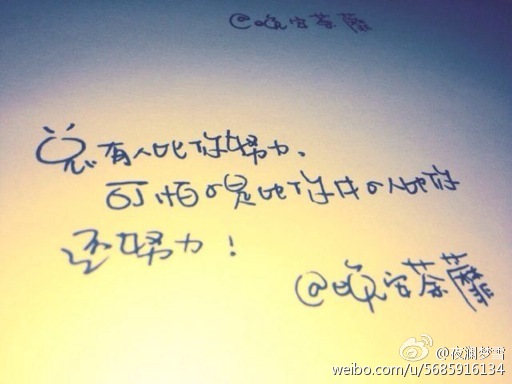 @晚安荼蘼
总有人比你努力、
可怕的是比你牛的人比你
还努力！
@晚安荼蘼
@夜澜梦雪
weibo.com/u/5685916134